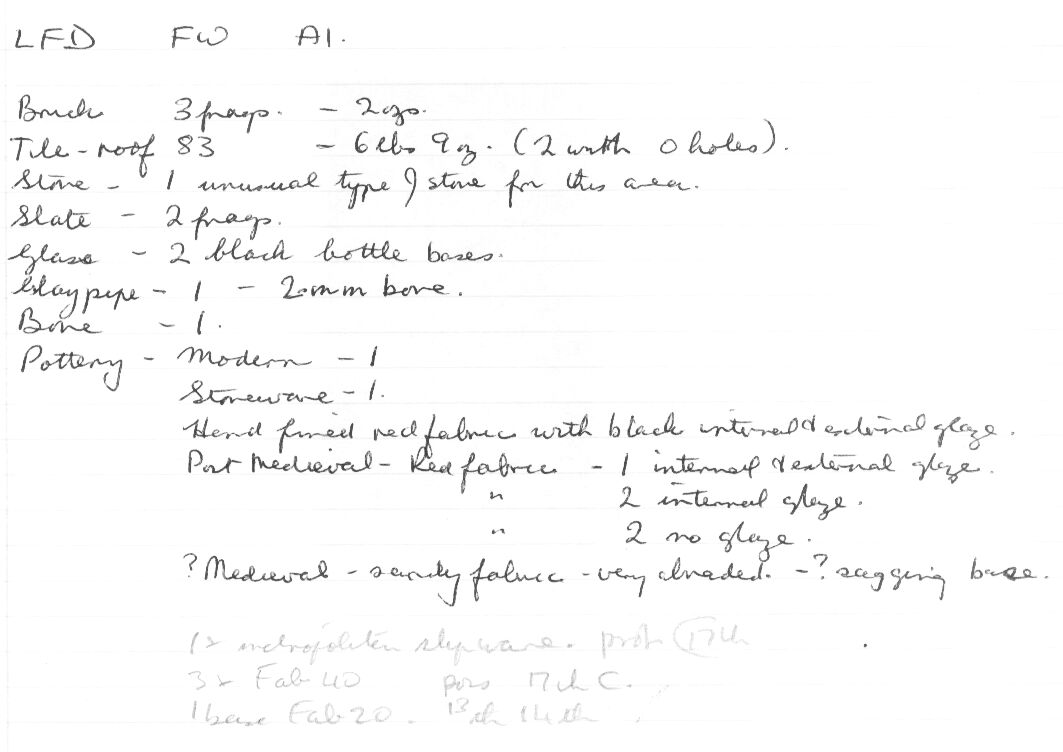 LFD FW A1.
Brick 3 frags. - 2 ozs.
Tile-roof 83 - 6 lbs 9 oz. (2 with 0 holes).
Stone - 1 unusual type of stone for this area.
Slate - 2 frags.
Glass - 2 black bottle bases.
Clay pipe - 1 - 2mm bore.
Bone - 1.
Pottery - Modern - 1
Stoneware - 1.
Hard fired red fabric with black internal & external glaze.
Post Medieval - Red fabric - 1 internal & external glaze.
" 2 internal glaze.
" 2 no glaze.
? Medieval - sandy fabric - very abraded. - ? sagging base.
1 x metropolitan slipware. prob 17th
3 x Fab 40 poss 17th C.
1 base Fab 20. 13th 14th